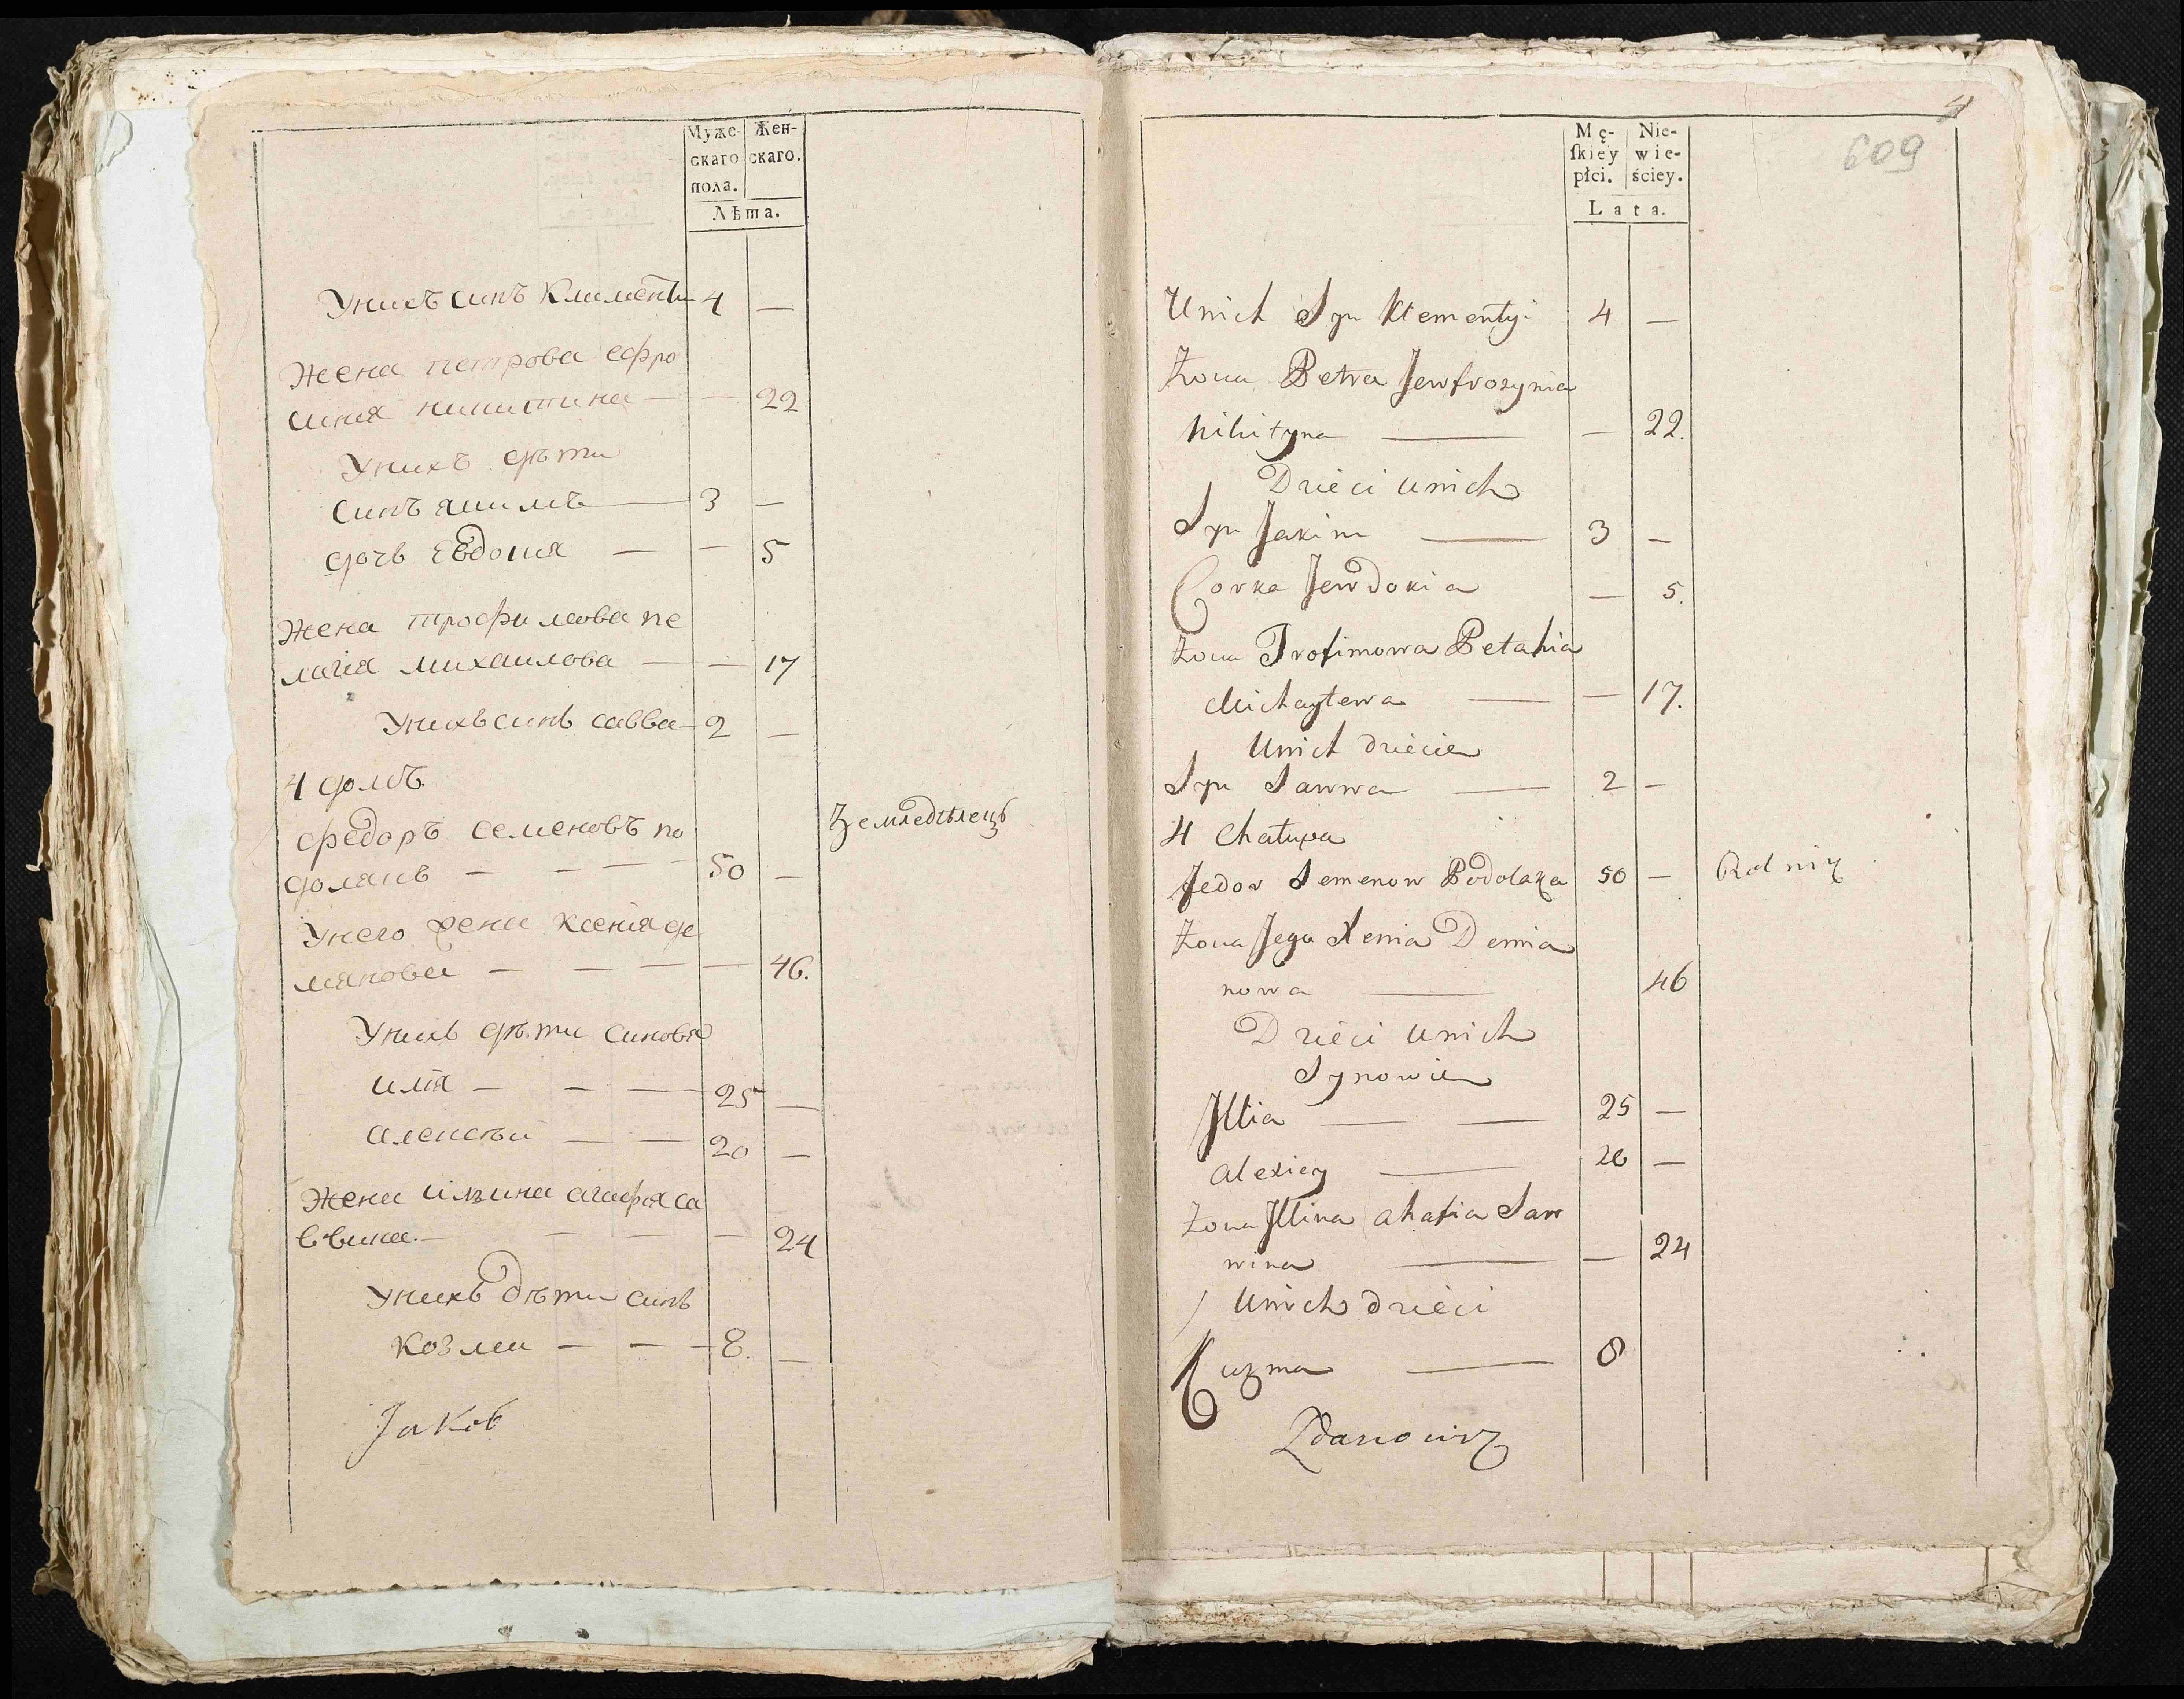 Муже- Жен-
скаго скаго.
пола.
Лѣта.
Унихъ синъ Климентіи 4 —
Жена петрова ефро
синия никитина — — 22
Унихъ дѣти
синъ якимъ — 3 —
дочь Евдокия — — 5
Жена трофимова пе
лагия михаилова — — 17
Унихъ синъ савва — 2 —
4 домъ
федоръ семеновъ по
долянъ — — — 50 — Земледѣлецъ
Унего жена Ксенія де
мянова — — — — 46.
Унихъ дѣти синовя
илія — — — 25 —
алексѣй — — 20 —
Жена илина агафія са
ввина — — — — 24
Унихъ дѣти синъ
козма — — — 8. —
Jakob
4
609
Mę- Nie-
ſkiey wie-
płci. ściey.
Lata.
Unich Syn Klementyi 4 —
Żona Petra Jewfrozynia
Nikityna — — 22.
Dzieci unich
Syn Jakim — 3 —
Corka Jewdokia — 5.
Żona Trofimowa Pelahia
Michayłewa — — 17.
Unich dziecie
Syn Sawwa — 2 —
4 Chatupa
Fedor Semenow Podolaka 50 — Rolnik
Żona Jego Xenia Demia
nowa — 46
Dzieci unich
Synowie
Jllia — — 25 —
Alexiey — 20 —
Żona Jllina Ahafia Saw
wina — — 24
Unich dzieci
Kuzma — 8
Zdanowicz